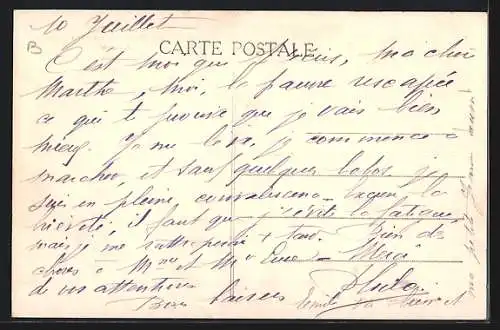 10 Juillet
B
CARTE POSTALE
C'est moi que je suis, ma chère
Marthe, Moi, la pauvre rescapée
ce qui te prouve que je vais bien
mieux. Je me lève, je commence à
marcher, et sauf quelques bobos je
suis en pleine convalescence
il faut que j'évite la fatigue,
mais je me rattraperai + tard. Bien des
choses à Mme et Mr Merci
de vos attentions
Bons baisers
ma petite